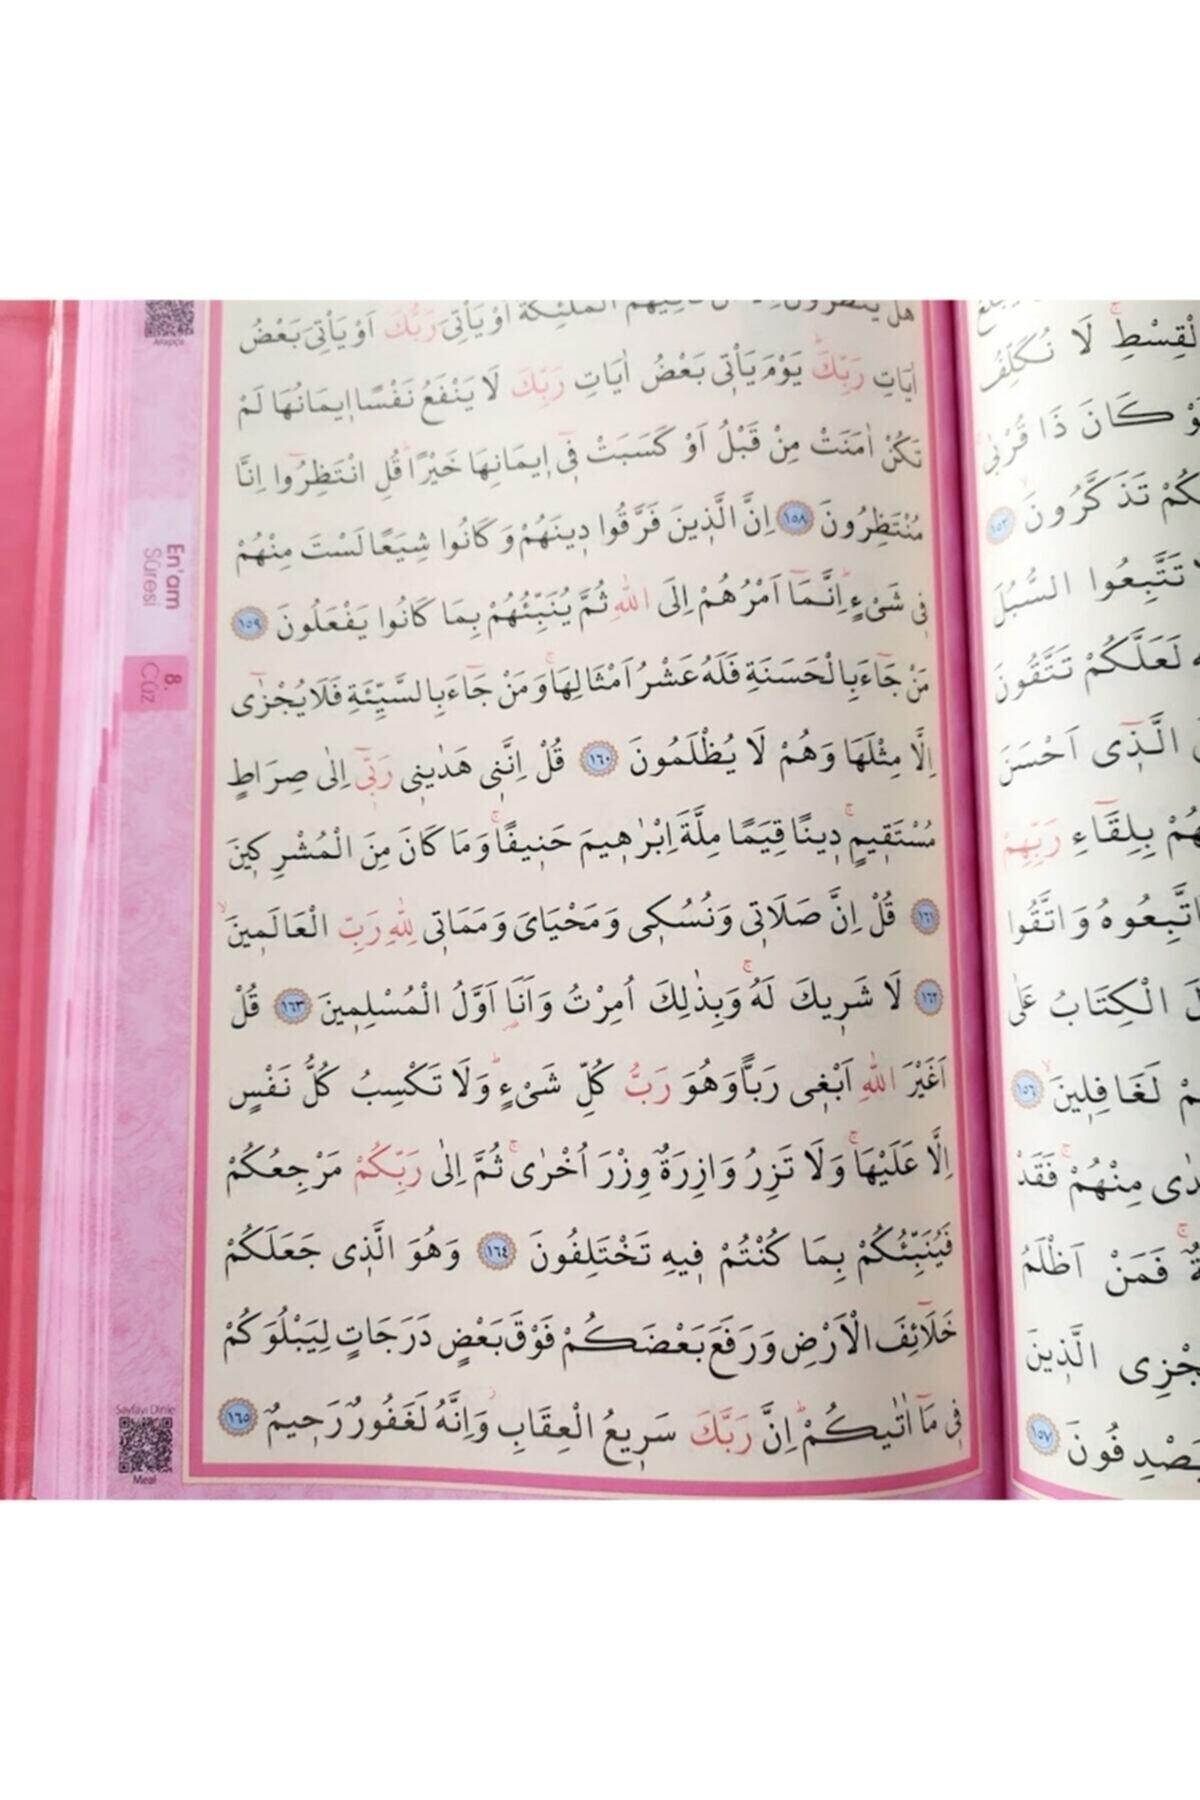 اَوْ يَأْتِىَ رَبُّكَ اَوْ يَأْتِىَ بَعْضُ
اٰيَاتِ رَبِّكَ يَوْمَ يَأْتٖى بَعْضُ اٰيَاتِ رَبِّكَ لَا يَنْفَعُ نَفْسًا اٖيمَانُهَا لَمْ
تَكُنْ اٰمَنَتْ مِنْ قَبْلُ اَوْ كَسَبَتْ فٖى اٖيمَانِهَا خَيْرًا قُلِ انْتَظِرُوا اِنَّا
مُنْتَظِرُونَ ١٥٨ اِنَّ الَّذٖينَ فَرَّقُوا دٖينَهُمْ وَكَانُوا شِيَعًا لَسْتَ مِنْهُمْ
فٖى شَىْءٍ اِنَّمَا اَمْرُهُمْ اِلَى اللّٰهِ ثُمَّ يُنَبِّئُهُمْ بِمَا كَانُوا يَفْعَلُونَ ١٥٩
مَنْ جَاءَ بِالْحَسَنَةِ فَلَهُ عَشْرُ اَمْثَالِهَا وَمَنْ جَاءَ بِالسَّيِّئَةِ فَلَا يُجْزٰى
اِلَّا مِثْلَهَا وَهُمْ لَا يُظْلَمُونَ ١٦٠ قُلْ اِنَّنٖى هَدٰينٖى رَبّٖى اِلٰى صِرَاطٍ
مُسْتَقٖيمٍ دٖينًا قِيَمًا مِلَّةَ اِبْرٰهٖيمَ حَنٖيفًا وَمَا كَانَ مِنَ الْمُشْرِكٖينَ
١٦١ قُلْ اِنَّ صَلَاتٖى وَنُسُكٖى وَمَحْيَاىَ وَمَمَاتٖى لِلّٰهِ رَبِّ الْعَالَمٖينَ
١٦٢ لَا شَرٖيكَ لَهُ وَبِذٰلِكَ اُمِرْتُ وَاَنَا اَوَّلُ الْمُسْلِمٖينَ ١٦٣ قُلْ
اَغَيْرَ اللّٰهِ اَبْغٖى رَبًّا وَهُوَ رَبُّ كُلِّ شَىْءٍ وَلَا تَكْسِبُ كُلُّ نَفْسٍ
اِلَّا عَلَيْهَا وَلَا تَزِرُ وَازِرَةٌ وِزْرَ اُخْرٰى ثُمَّ اِلٰى رَبِّكُمْ مَرْجِعُكُمْ
فَيُنَبِّئُكُمْ بِمَا كُنْتُمْ فٖيهِ تَخْتَلِفُونَ ١٦٤ وَهُوَ الَّذٖى جَعَلَكُمْ
خَلَائِفَ الْاَرْضِ وَرَفَعَ بَعْضَكُمْ فَوْقَ بَعْضٍ دَرَجَاتٍ لِيَبْلُوَكُمْ
فٖى مَا اٰتٰيكُمْ اِنَّ رَبَّكَ سَرٖيعُ الْعِقَابِ وَاِنَّهُ لَغَفُورٌ رَحٖيمٌ ١٦٥
Arapça
En'am
Sûresi
8.
Cüz
Sayfayı Dinle
Meal
لَا نُكَلِّفُ
كَانَ ذَا قُرْبٰى
تَذَكَّرُونَ ١٥٢
تَتَّبِعُوا السُّبُلَ
لَعَلَّكُمْ تَتَّقُونَ
الَّذٖى اَحْسَنَ
بِلِقَاءِ رَبِّهِمْ
وَاتَّقُوا
الْكِتَابُ عَلٰى
لَغَافِلٖينَ ١٥٦
مِنْهُمْ فَقَدْ
فَمَنْ اَظْلَمُ
الَّذٖينَ
١٥٧